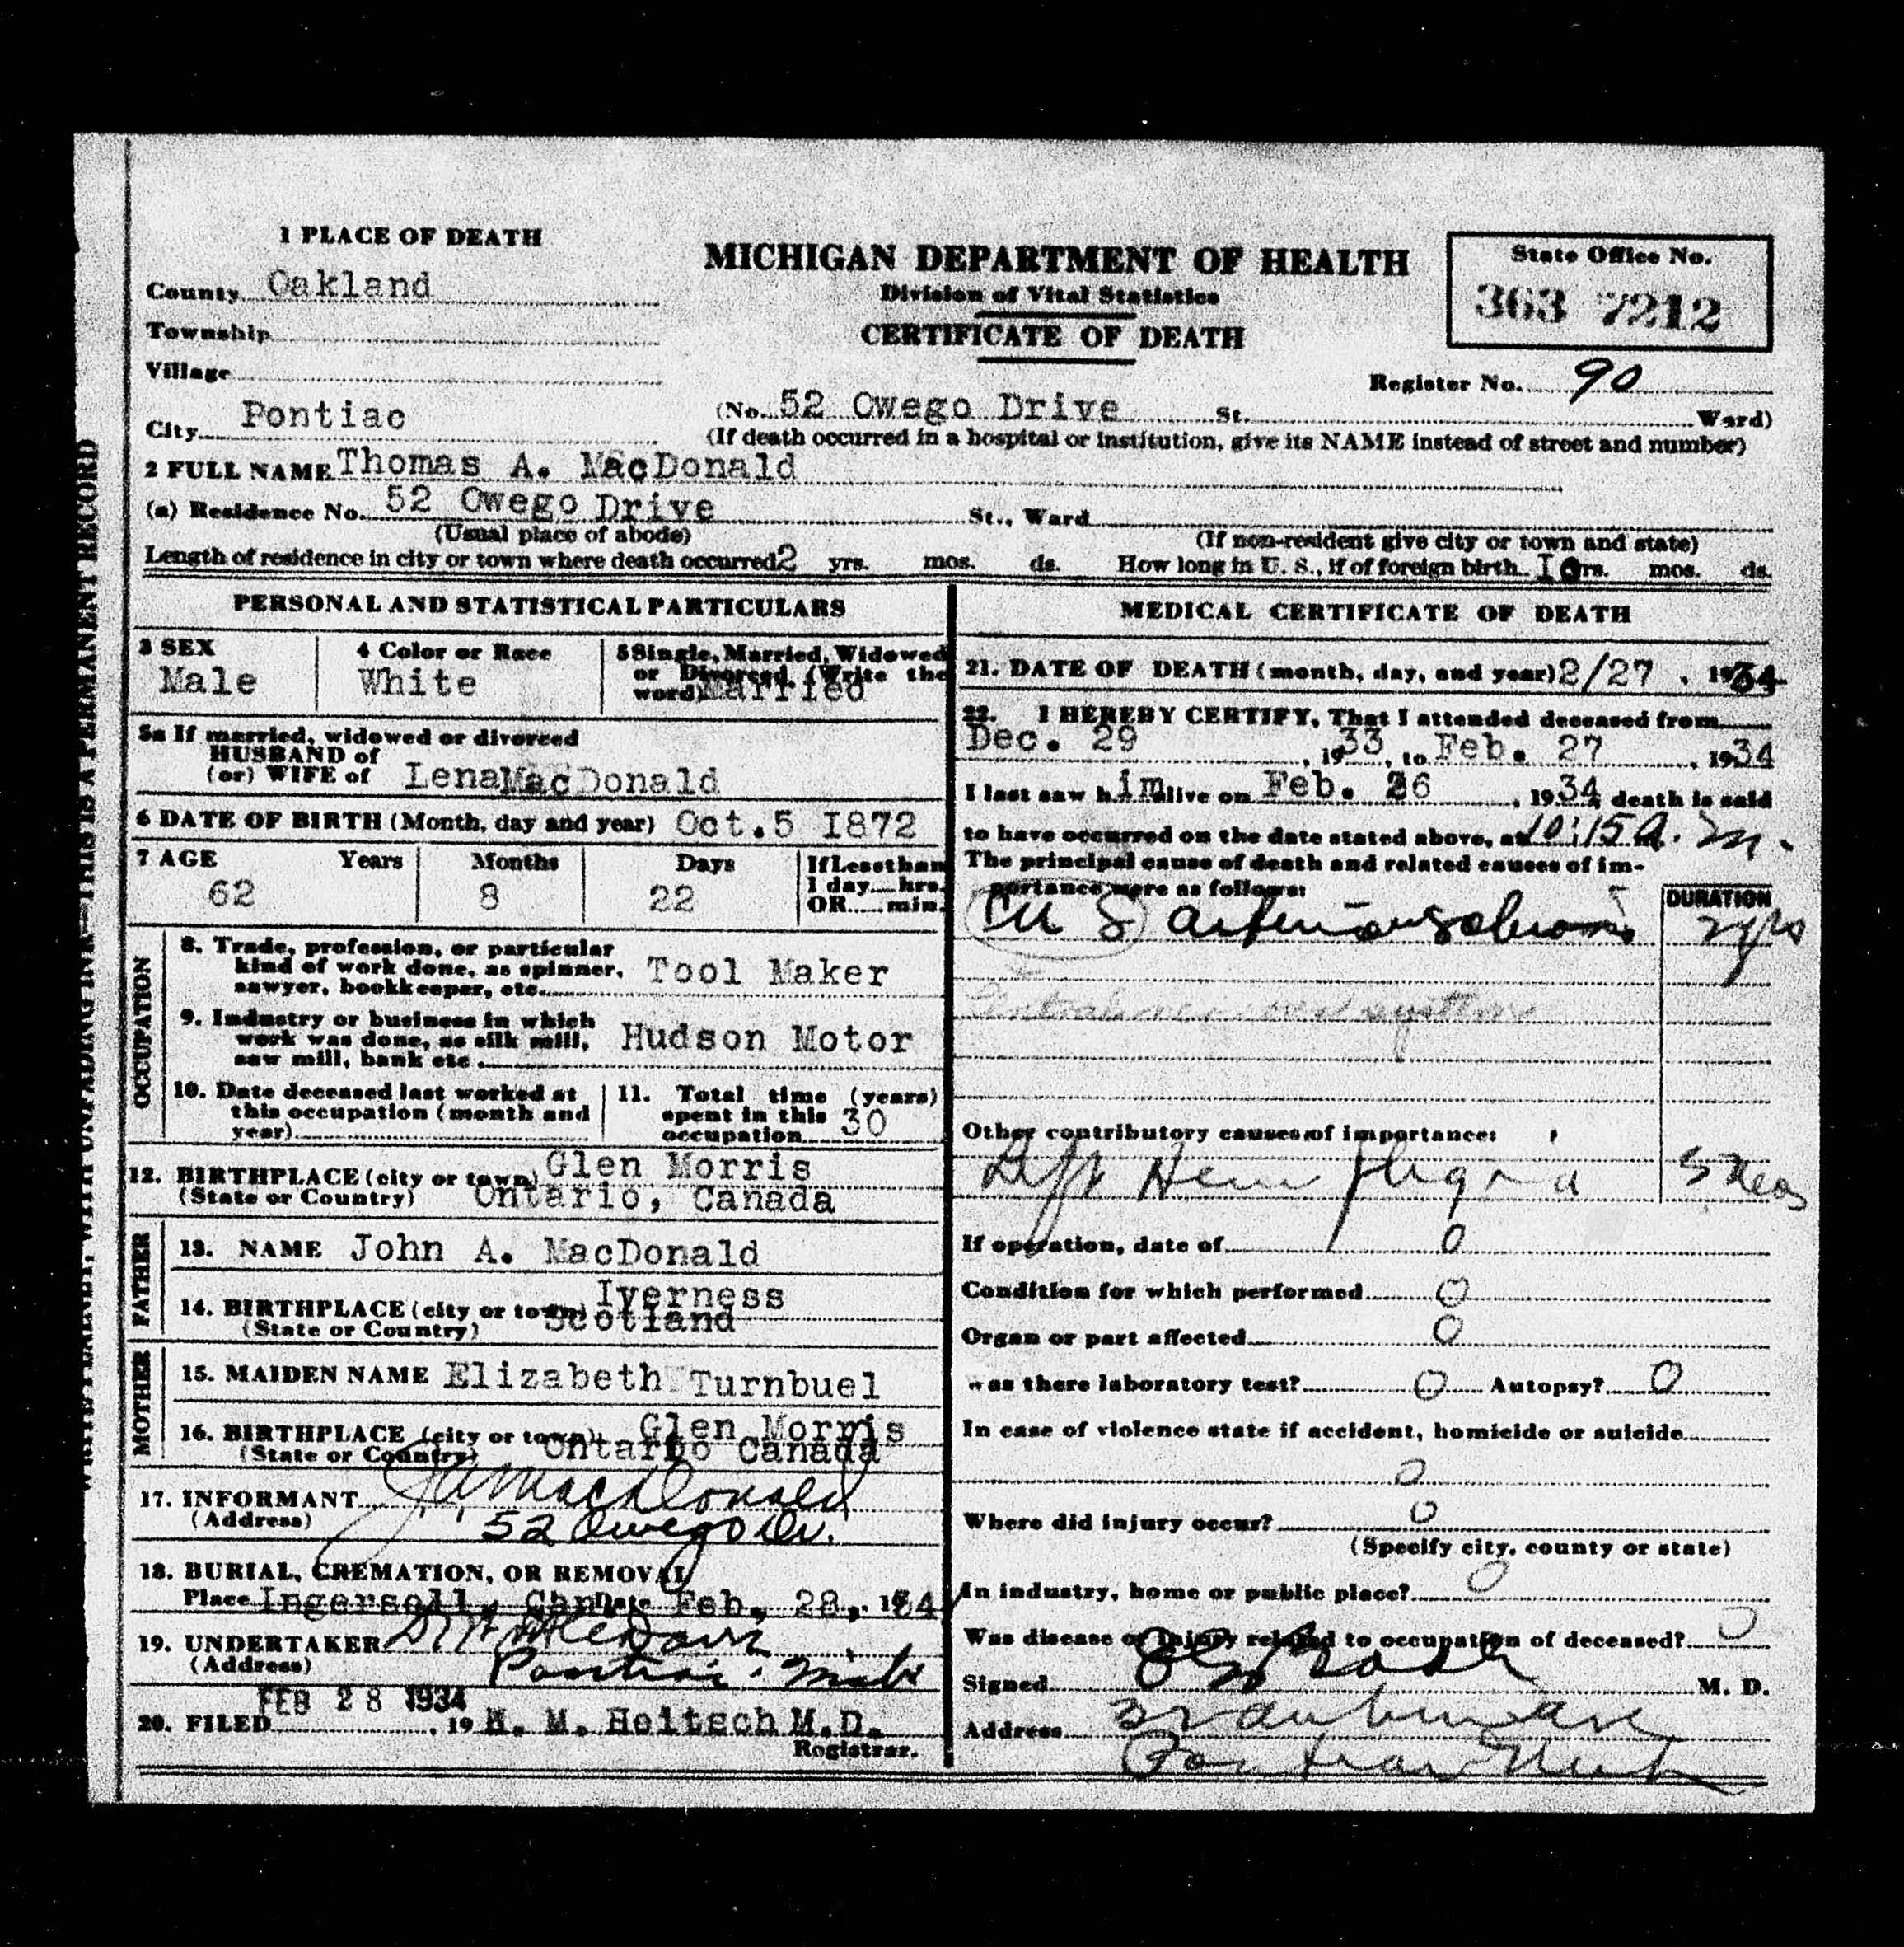 1 PLACE OF DEATH
MICHIGAN DEPARTMENT OF HEALTH
Division of Vital Statistics
CERTIFICATE OF DEATH
State Office No.
363 7212
County Oakland
Township
Village
Register No. 90
City Pontiac
(No. 52 Owego Drive St. Ward)
(If death occurred in a hospital or institution, give its NAME instead of street and number)
2 FULL NAME Thomas A. MacDonald
(a) Residence No. 52 Owego Drive St., Ward
(Usual place of abode) (If non-resident give city or town and state)
Length of residence in city or town where death occurred 2 yrs. mos. ds. How long in U. S., if of foreign birth yrs. mos. ds.
PERSONAL AND STATISTICAL PARTICULARS
3 SEX
Male
4 Color or Race
White
5 Single, Married, Widowed
or Divorced, (Write the
word) Married
5a If married, widowed or divorced
HUSBAND of
(or) WIFE of Lena MacDonald
6 DATE OF BIRTH (Month, day and year) Oct. 5 1872
7 AGE Years Months Days
62 8 22
If Less than
1 day hrs.
OR min.
OCCUPATION
8. Trade, profession, or particular
kind of work done, as spinner,
sawyer, bookkeeper, etc. Tool Maker
9. Industry or business in which
work was done, as silk mill,
saw mill, bank etc Hudson Motor
10. Date deceased last worked at
this occupation (month and
year)
11. Total time (years)
spent in this
occupation 30
12. BIRTHPLACE (city or town) Glen Morris
(State or Country) Ontario, Canada
FATHER
13. NAME John A. MacDonald
14. BIRTHPLACE (city or town) Iverness
(State or Country) Scotland
MOTHER
15. MAIDEN NAME Elizabeth Turnbuel
16. BIRTHPLACE (city or town) Glen Morris
(State or Country) Ontario Canada
17. INFORMANT MacDonald
(Address) 52 Owego Dr.
18. BURIAL, CREMATION, OR REMOVAL
Place Ingersoll, Can. Date Feb. 28, 1934
19. UNDERTAKER
(Address) Pontiac, Mich
FEB 28 1934
20. FILED , 19 H. M. Heitsch M.D.
Registrar.
MEDICAL CERTIFICATE OF DEATH
21. DATE OF DEATH (month, day, and year) 2/27 , 1934
22. I HEREBY CERTIFY, That I attended deceased from
Dec. 29 , 1933, to Feb. 27 , 1934
I last saw him alive on Feb. 26 , 1934, death is said
to have occurred on the date stated above, at 10:15 a. m.
The principal cause of death and related causes of im-
portance were as follows:
DURATION
2 yrs
Other contributory causes of importance:
Left Hemiplegia
If operation, date of 0
Condition for which performed 0
Organ or part affected 0
Was there laboratory test? 0 Autopsy? 0
In case of violence state if accident, homicide or suicide
0
Where did injury occur? 0
(Specify city, county or state)
In industry, home or public place? 0
Was disease or injury related to occupation of deceased? 0
Signed M. D.
Address Auburn Ave
Pontiac Mich
THIS IS A PERMANENT RECORD